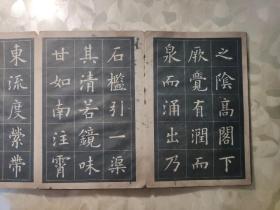 之陰高閣下
厥覺有潤而
泉而涌出乃
石檻引一渠
其清若鏡味
甘如南注霄
東流度縈帶